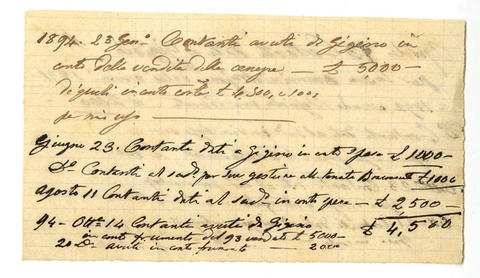 1894. 23 Genº Contanti avuti da Gigino in
conto della vendita delle cenere — £ 5000 —
di quali in conto £ 4,500, e 100
per mio uso
Giugno 23. Contanti dati a Gigino in conto spese £ 1000 —
Dº Contanti al sudº. per sue gestione alla tenuta £ 1000
agosto 11 Contanti dati al sudº in conto spese — £ 2,500 —
£ 4,500
94 — Ottº 14 Contanti avuti da Gigino
in conto frumento del 93 venduto £ 5000 —
20 Dº avuti in conto frumento — 2000